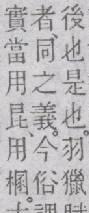 後也是也。羽獵賦
者、同之義。今俗謂
實當用昆、用棞。